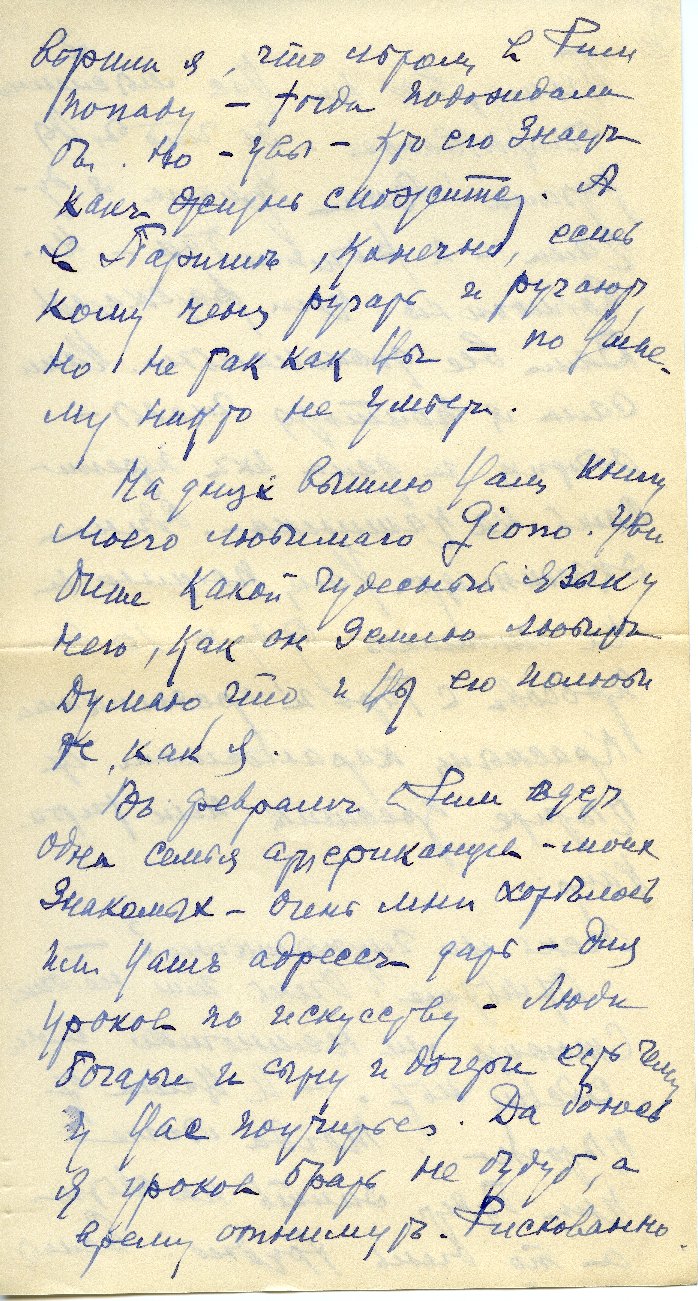 я, что скоро в Рим
попаду – тогда подождала
бъ. Но – увы – кто его знаетъ
какъ жизнь сложится. А
въ Парижѣ, конечно, есть
кому меня ругать и ругаютъ,
но не так как Вы – по Ваше-
му никто не умѣетъ.
На днях вышлю Вамъ книгу
моего любимаго Giono. Уви
дите какой чудесный язык у
него, как он землю любитъ
Думаю, что и Вы его полюби
те, как я.
Въ февралѣ в Рим едет
одна семья американцев – моих
знакомых – очень мнѣ хотѣлось
им Вашъ адресъ дать – для
уроков по искусству – Люди
богатые и сыну и дочери есть чему
у Вас поучиться. Да боюсь
я уроков брать не будут, а
время отнимутъ. Рискованно.